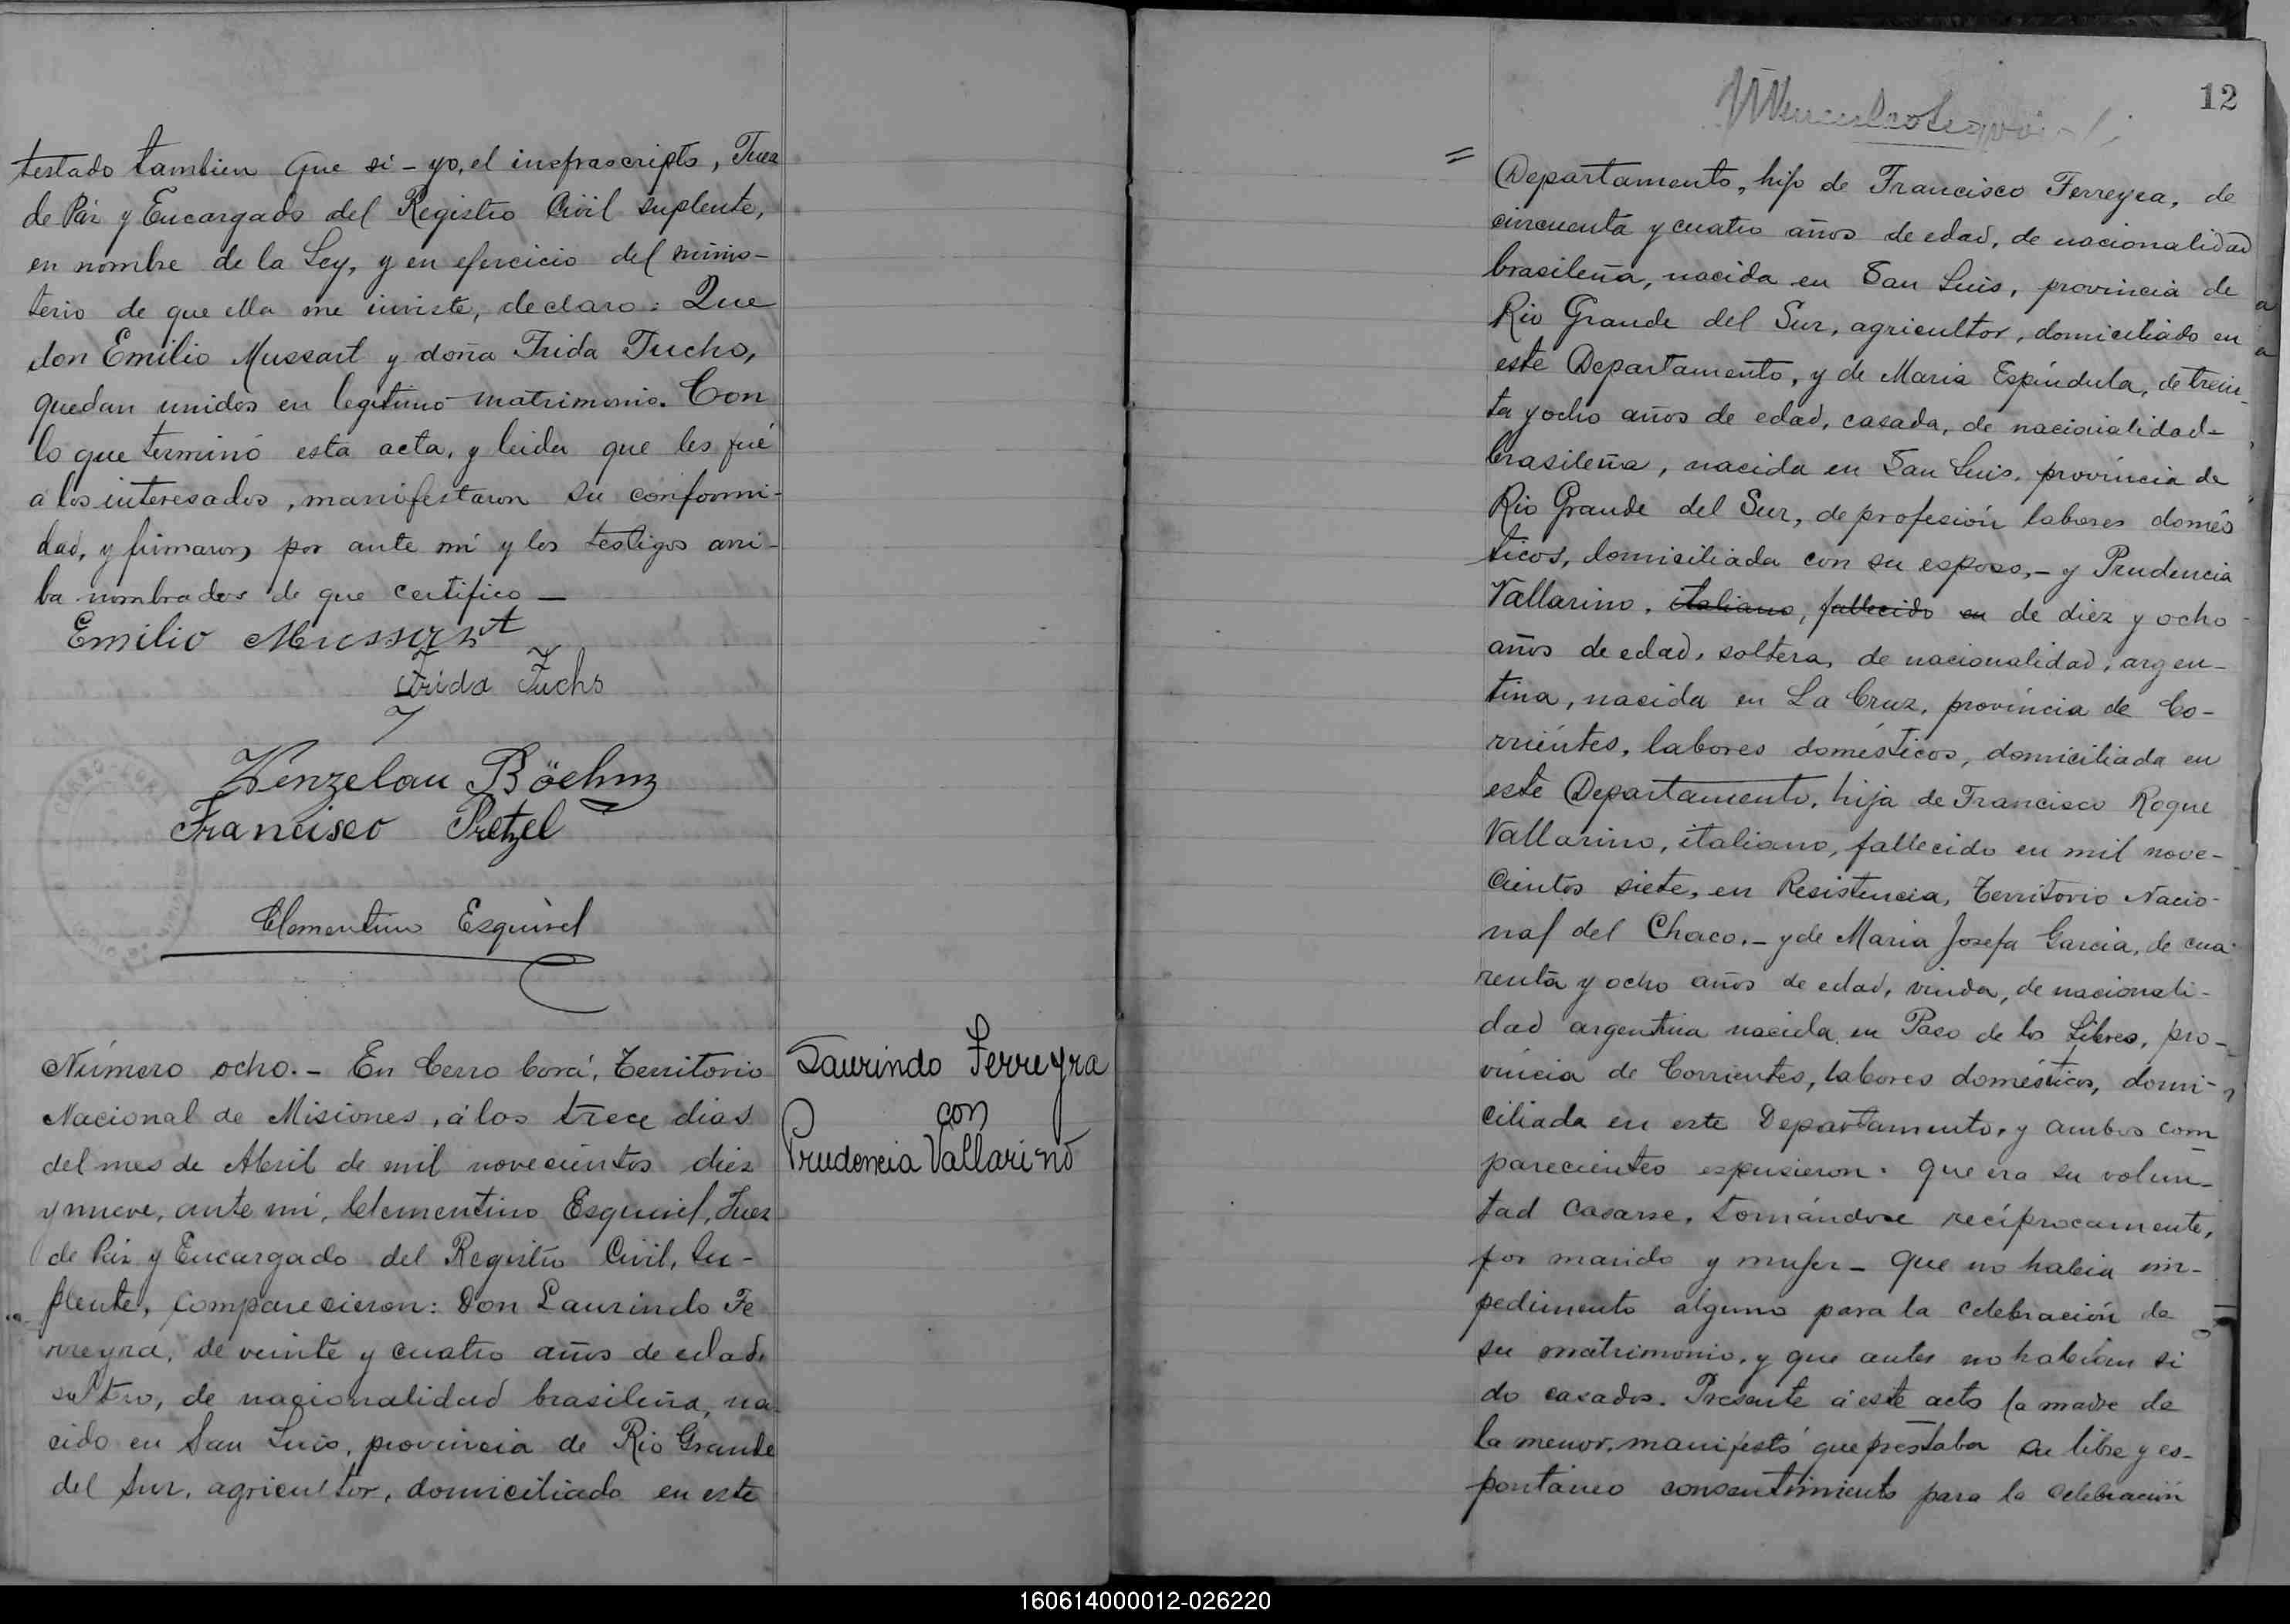 testado tambien que si - yo, el insfrascripto, Juez
de Paz y Encargado del Registro Civil suplente,
en nombre de la Ley, y en ejercicio del minis-
terio de que ella me inviste, declaro: Que
don Emilio Mussart y doña Frida Fuchs,
quedan unidos en legitimo matrimonio. Con
lo que terminó esta acta, y leida que les fué
a los interesados, manifestaron su conformi-
dad, y firmaron por ante mi y los testigos arri-
ba nombrados de que certifico —
Emilio Mussart
Frida Fuchs
Wenzelau Böehm
Francisco Pretzel
Clementino Esquivel
Número ocho. - En Cerro Corá, Territorio
Nacional de Misiones, á los trece dias
del mes de Abril de mil novecientos diez
y nueve, ante mi, Clementino Esquivel, Juez
de Paz y Encargado del Registro Civil, Su-
plente, comparecieron: Don Laurindo Fe
rreyra, de veinte y cuatro años de edad,
soltero, de nacionalidad brasileña, na-
cido en San Luis, provincia de Rio Grande
del Sur, agricultor, domiciliado en este
Laurindo Ferreyra
con
Prudencia Vallarino
12
= Departamento, hijo de Francisco Ferreyra, de
cincuenta y cuatro años de edad, de nacionalidad
brasileña, nacida en San Luis, provincia de
Rio Grande del Sur, agricultor, domiciliado en
este Departamento, y de Maria Espíndula, de trein-
ta y ocho años de edad, casada, de nacionalidad-
brasileña, nacida en San Luis, provincia de
Rio Grande del Sur, de profesión labores domés
ticos, domiciliada con su esposo, - y Prudencia
Vallarino, italiano, fallecido en de diez y ocho
años de edad, soltera, de nacionalidad, argen-
tina, nacida en La Cruz, provincia de Co-
rrientes, labores domésticos, domiciliada en
este Departamento, hija de Francisco Roque
Vallarino, italiano, fallecido en mil nove-
cientos siete, en Resistencia, Territorio Nacio-
nal del Chaco. - y de Maria Josefa Garcia, de cua-
renta y ocho años de edad, viuda, de nacionali-
dad argentina nacida en Paso de los Libres, pro-
vincia de Corrientes, labores domésticos, domi-
ciliada en este Departamento, y ambos com
parecientes espusieron. Que era su volun-
tad casarse, tomándose recíprocamente,
por marido y mujer - Que no habia im-
pedimento alguno para la celebración de
su matrimonio, y que antes no habian si
do casados. Presente á este acto la madre de
la menor, manifestó que prestaba su libre y es-
pontáneo consentimiento para la celebración
160614000012-026220